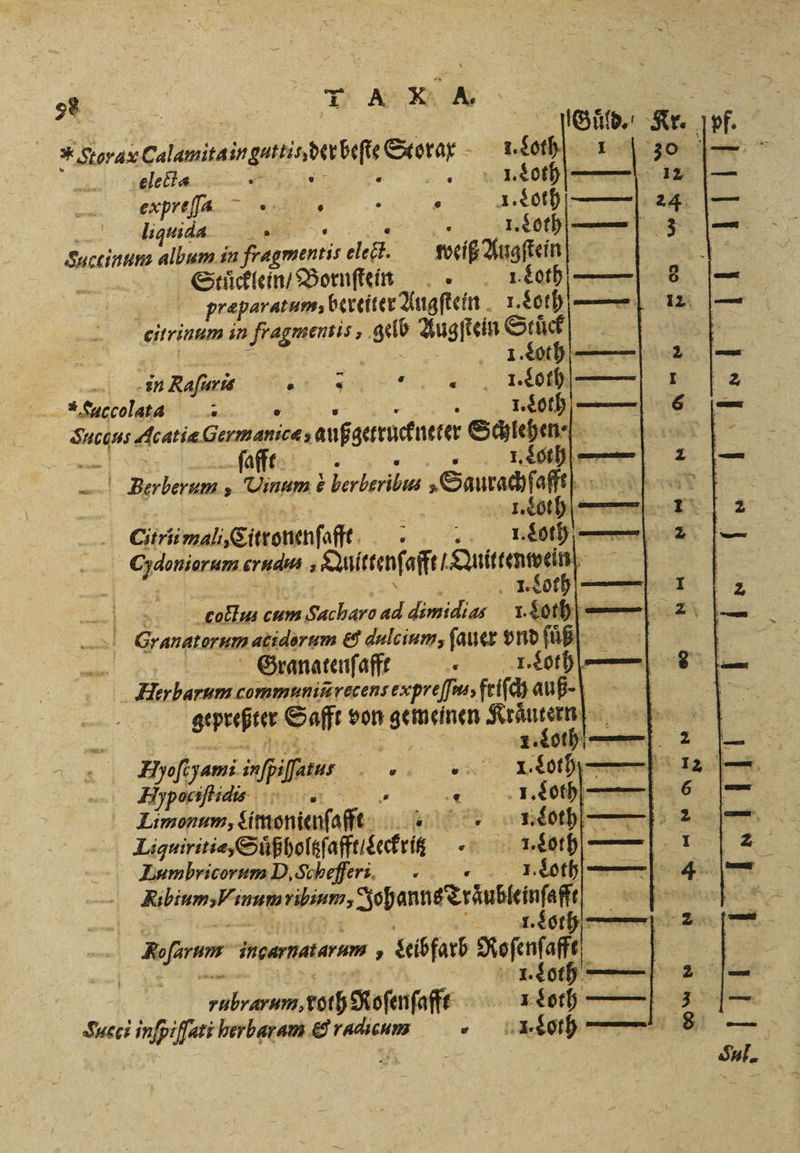 98 T A X A.
Gůld. Kr. pf.
* Storax Calamita in guttis, der beste Storax 1. Loth 1 30 —
electa . . . . 1. Loth — 12 —
expressa . . . 1. Loth — 24 —
liquida . . . 1. Loth — 3 —
Succinum album in fragmentis elect. weiß Augstein
Stücklein/ Bornstein . 1. Loth — 8 —
præparatum, bereiter Augstein 1. Loth — 12 —
citrinum in fragmentis, gelb Augstein Stück
1. Loth — 2 —
in Rasuris . . . . 1. Loth — 1 2
* Succolata . . . . . 1. Loth — 6 —
Succus Acatiæ Germanicæ, außgetruckneter Schlehen-
safft . . . 1. Loth — 2 —
Berberum, Vinum è berberibus, Saurachsafft
1. Loth — 1 2
Citri mali, Citronensafft . . 1. Loth — 2 —
Cydoniorum crudus, Quittensafft / Quittenwein
1. Loth — 1 2
coctus cum Sacharo ad dimidias 1. Loth — 2 —
Granatorum acidorum & dulcium, sauer vnd süß
Granatensafft . 1. Loth — 8 —
Herbarum communiũ recens expressus, frisch auß-
gepreßter Safft von gemeinen Kräutern
1. Loth — 2 —
Hyoscyami inspissatus . . 1. Loth — 12 —
Hypocistidis . . . 1. Loth — 6 —
Limonum, Limoniensafft . . 1. Loth — 2 —
Liquiritiæ, Süßholtzsafft/ Leckritz . 1. Loth — 1 2
Lumbricorum D. Schefferi . . 1. Loth — 4 —
Ribium, Vinum ribium, Johanns Träubleinsafft
1. Loth — 2 —
Rosarum incarnatarum, Leibfarb Rosensafft
1. Loth — 2 —
rubrarum, roth Rosensafft 1 Loth — 3 —
Succi inspissati herbarum & radicum . 1. Loth — 8 —
Sul.